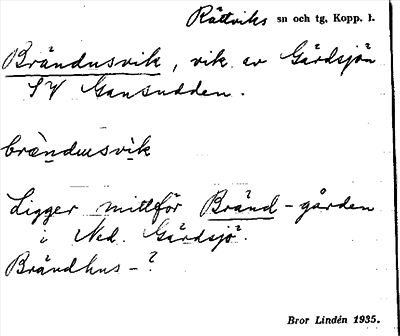 Rättviks sn och tg, Kopp. l.
Brändusvik, vik av Gårdsjön
SV Gansudden.
brændusvik
Ligger mittför Bränd-gården
i Ned. Gärdsjö.
Brändhus-?
Bror Lindén 1935.